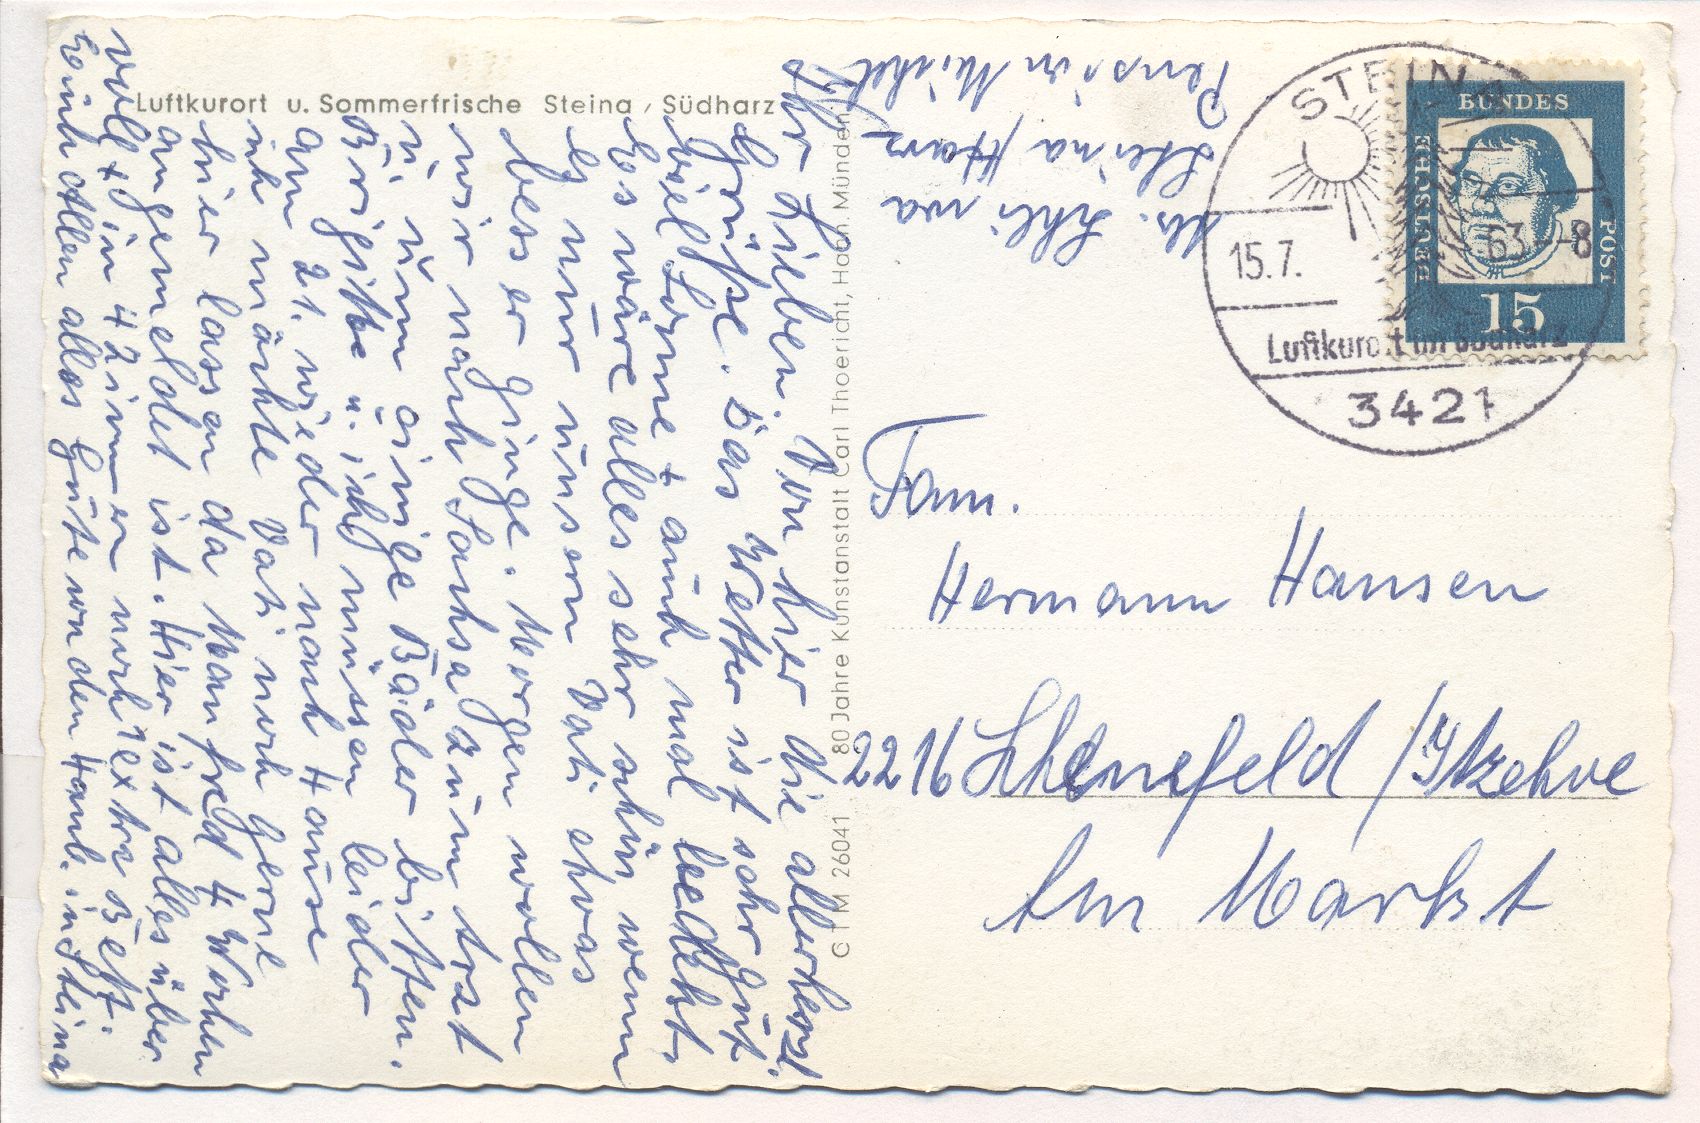 Luftkurort u. Sommerfrische Steina / Südharz
Ihr Lieben! Von hier die allerherzl.
Grüße. Das Wetter ist sehr gut
viel Sonne + auch mal bedeckt.
Es wäre alles sehr schön wenn
es nur unsern Vati etwas
besser ginge. Morgen wollen
wir nach Sachsa zum Arzt
u. um einige Bäder bitten.
Brigitte u. ich müssen leider
am 21. wieder nach Hause
ich möchte Vati noch gerne
hier lassen da Manfred 4 Wochen
angemeldet ist. Hier ist alles über
voll + in 4 Zimmern noch extra Bett.
Euch Allen alles Gute von den Hamb. in Steina
C T M 26041 80 Jahre Kunstanstalt Carl Thoericht, Hann. Münden
Abs.
Steina / Harz
Pension
STEINA
15.7. 63 - 8
Luftkurort im Südharz
3421
DEUTSCHE BUNDES POST
15
Fam.
Hermann Hansen
2216 Schenefeld / Itzehoe
Am Markt